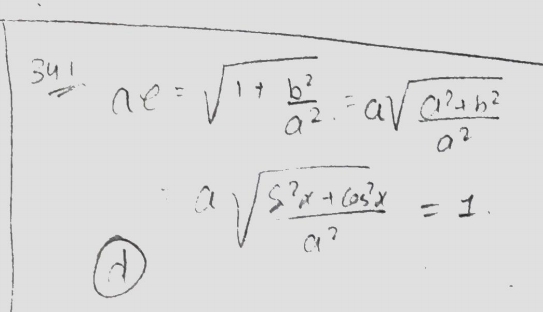 341. ae = √(1 + b²/a²) = a√((a²+b²)/a²)
= a√((S²x + cos²x)/a²) = 1.
(d)